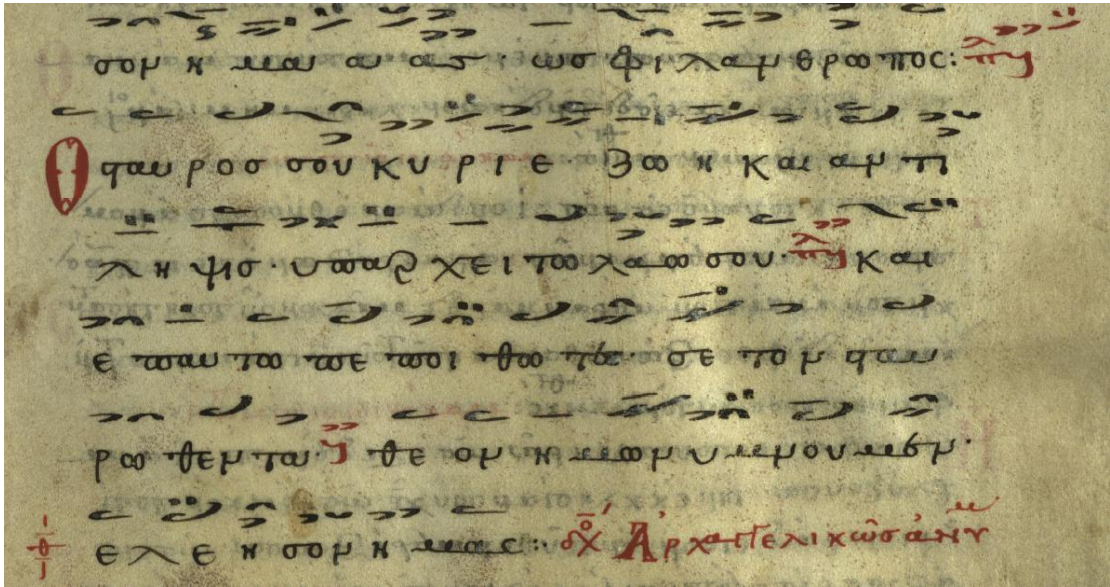 σον η μα α ας ως φι λαν θρω πος:
Ο σταυ ρος σου κυ ρι ε· ζω η και αν τι
λη ψισ· υπαρ χει τω λαω σου· και
ε π αυ τω πε ποι θω τες σε τον σταυ
ρω θεν τα· θε ον η μων υ μνου μεν·
ε λε η σον η μας:· Ἀρχαγγελικῶς ἀνυ